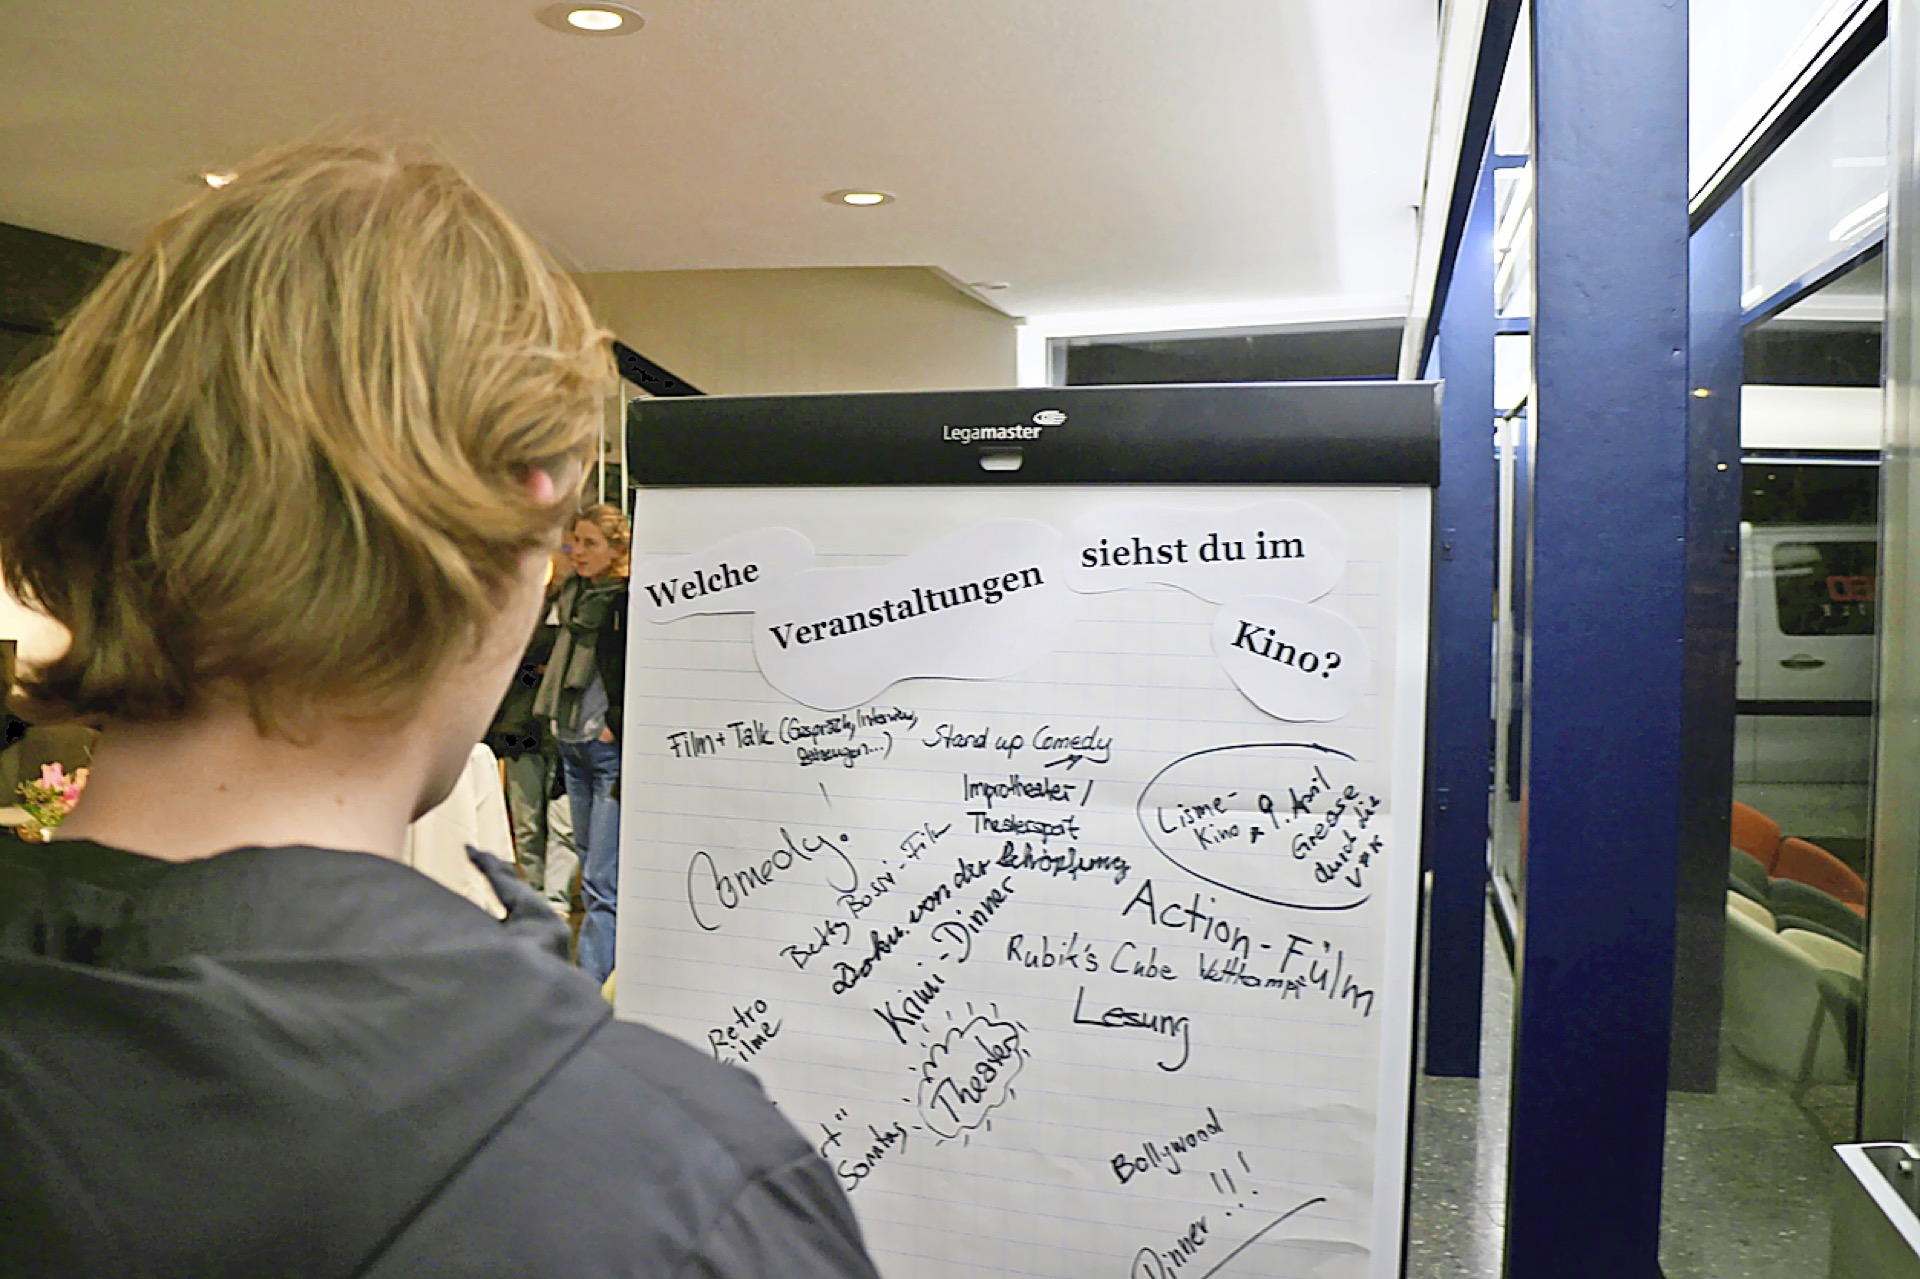 Legamaster
Welche
Veranstaltungen
siehst du im
Kino?
Film + Talk (Gespräch, Interview,
Stand up Comedy
Improtheater /
Theatersport
Lisme-
Kino
9. April
Grease
durch die
Comedy!
Betty Bossi-Film
Doku. von der Schöpfung
Krimi-Dinner
Action-Fülm
Rubik's Cube Wettkampf
Lesung
Retro
Filme
Theater
Sonntag
Bollywood
Dinner !!!